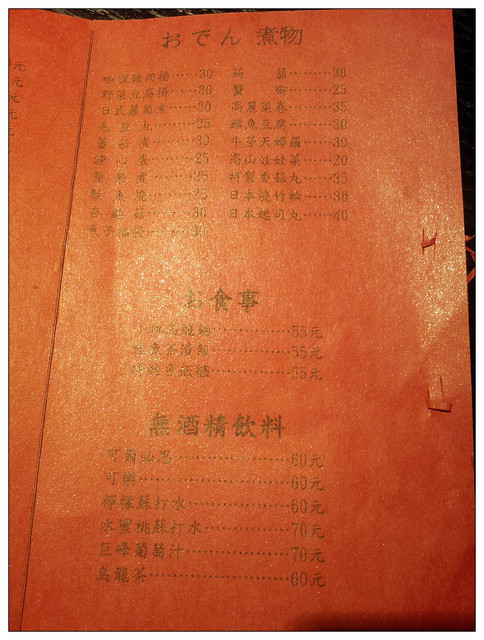 元
元
元
元
おでん 煮物
咖哩豬肉揚……30
野菜豆腐揚……30
日式蘿蔔煮……30
毛豆丸……25
蕃茄煮……30
溏心蛋……25
……25
……35
杏鮑菇……30
魚子福袋……30
蒟蒻……30
蟹腳……25
高麗菜卷……35
鱈魚豆腐……30
牛蒡天婦羅……30
高山娃娃菜……20
特製香菇丸……35
日本燒竹輪……30
日本起司丸……40
お食事
烏龍麵……55元
鮭魚茶漬飯……55元
飯糰……55元
無酒精飲料
可爾必思……60元
可樂……60元
檸檬蘇打水……60元
水蜜桃蘇打水……70元
巨峰葡萄汁……70元
烏龍茶……60元